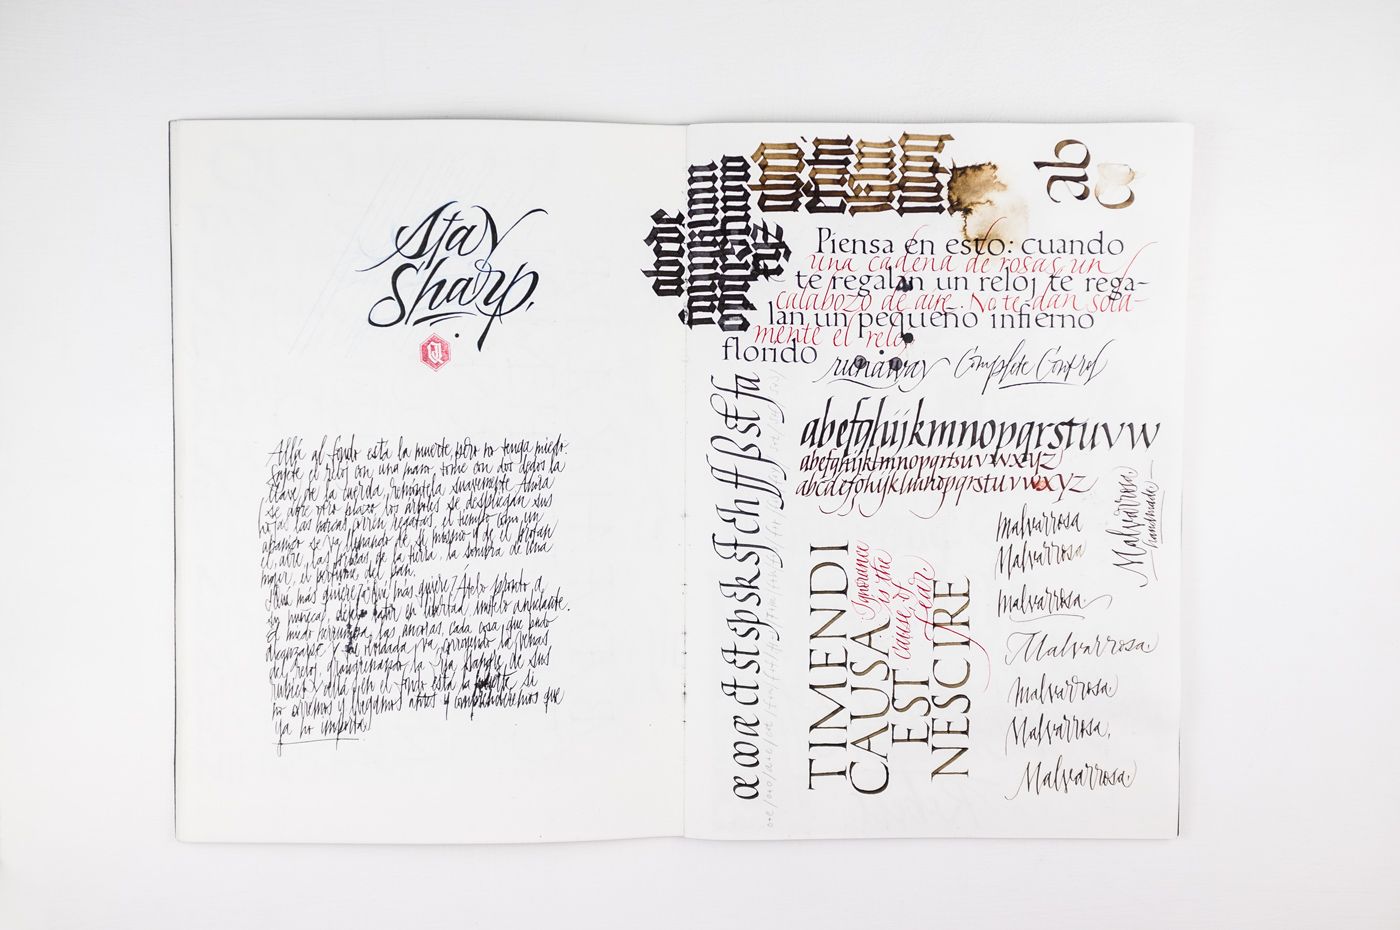 Stay
Sharp.
Allá al fondo está la muerte, pero no tenga miedo.
Sujete el reloj con una mano, tome con dos dedos la
clave de la cuerda, remóntela suavemente. Ahora
se abre otro plazo, los árboles se despliegan sus
hojas, las barcas corren regatas, el tiempo como un
abanico se va llenando de sí mismo y de él brotan
el aire, las brisas de la tierra, la sombra de una
mujer, el perfume del pan.
¿Qué más quiere, qué más quiere? Átelo pronto a
su muñeca, déjelo latir en libertad, imítelo anhelante.
El miedo herrumbra las áncoras, cada cosa que pudo
alcanzarse y fue olvidada va corroyendo las venas
del reloj, gangrenando la fría sangre de sus
rubíes. Y allá en el fondo está la muerte si
no corremos y llegamos antes y comprendemos que
ya no importa.
abcde
xyz
ab
c
Piensa en esto: cuando
una cadena de rosas, un
te regalan un reloj te rega-
calabozo de aire. No te dan sola-
lan un pequeño infierno
mente el reloj
florido
runaway Complete Control
abefghijkmnopqrstuvw
abefghijklmnopqrstuvwxyz
abcdefghijklmnopqrstuvwxyz
TIMENDI
CAUSA
EST
NESCIRE
Ignorance
is the
cause of
fear.
Malvarrosa
handmade
Malvarrosa
Malvarrosa
Malvarrosa
Malvarrosa
Malvarrosa
Malvarrosa.
Malvarrosa.